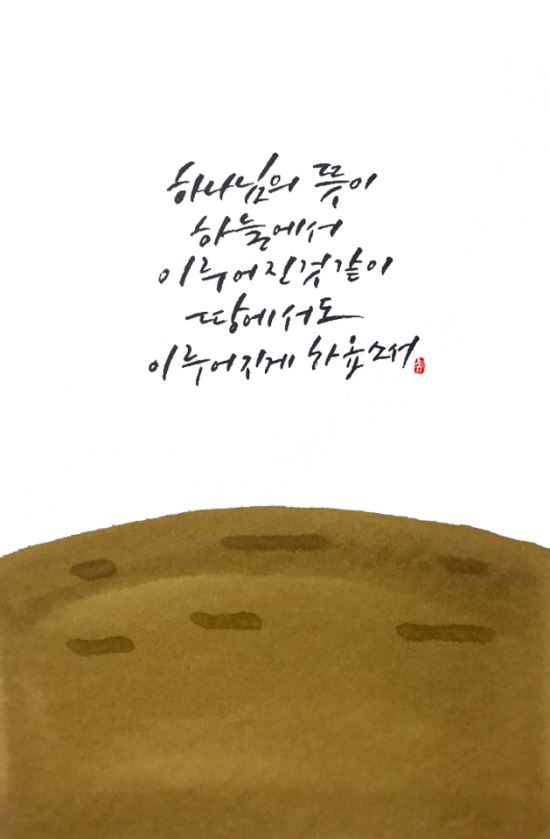 하나님의 뜻이
하늘에서
이루어진것같이
땅에서도
이루어지게 하옵소서